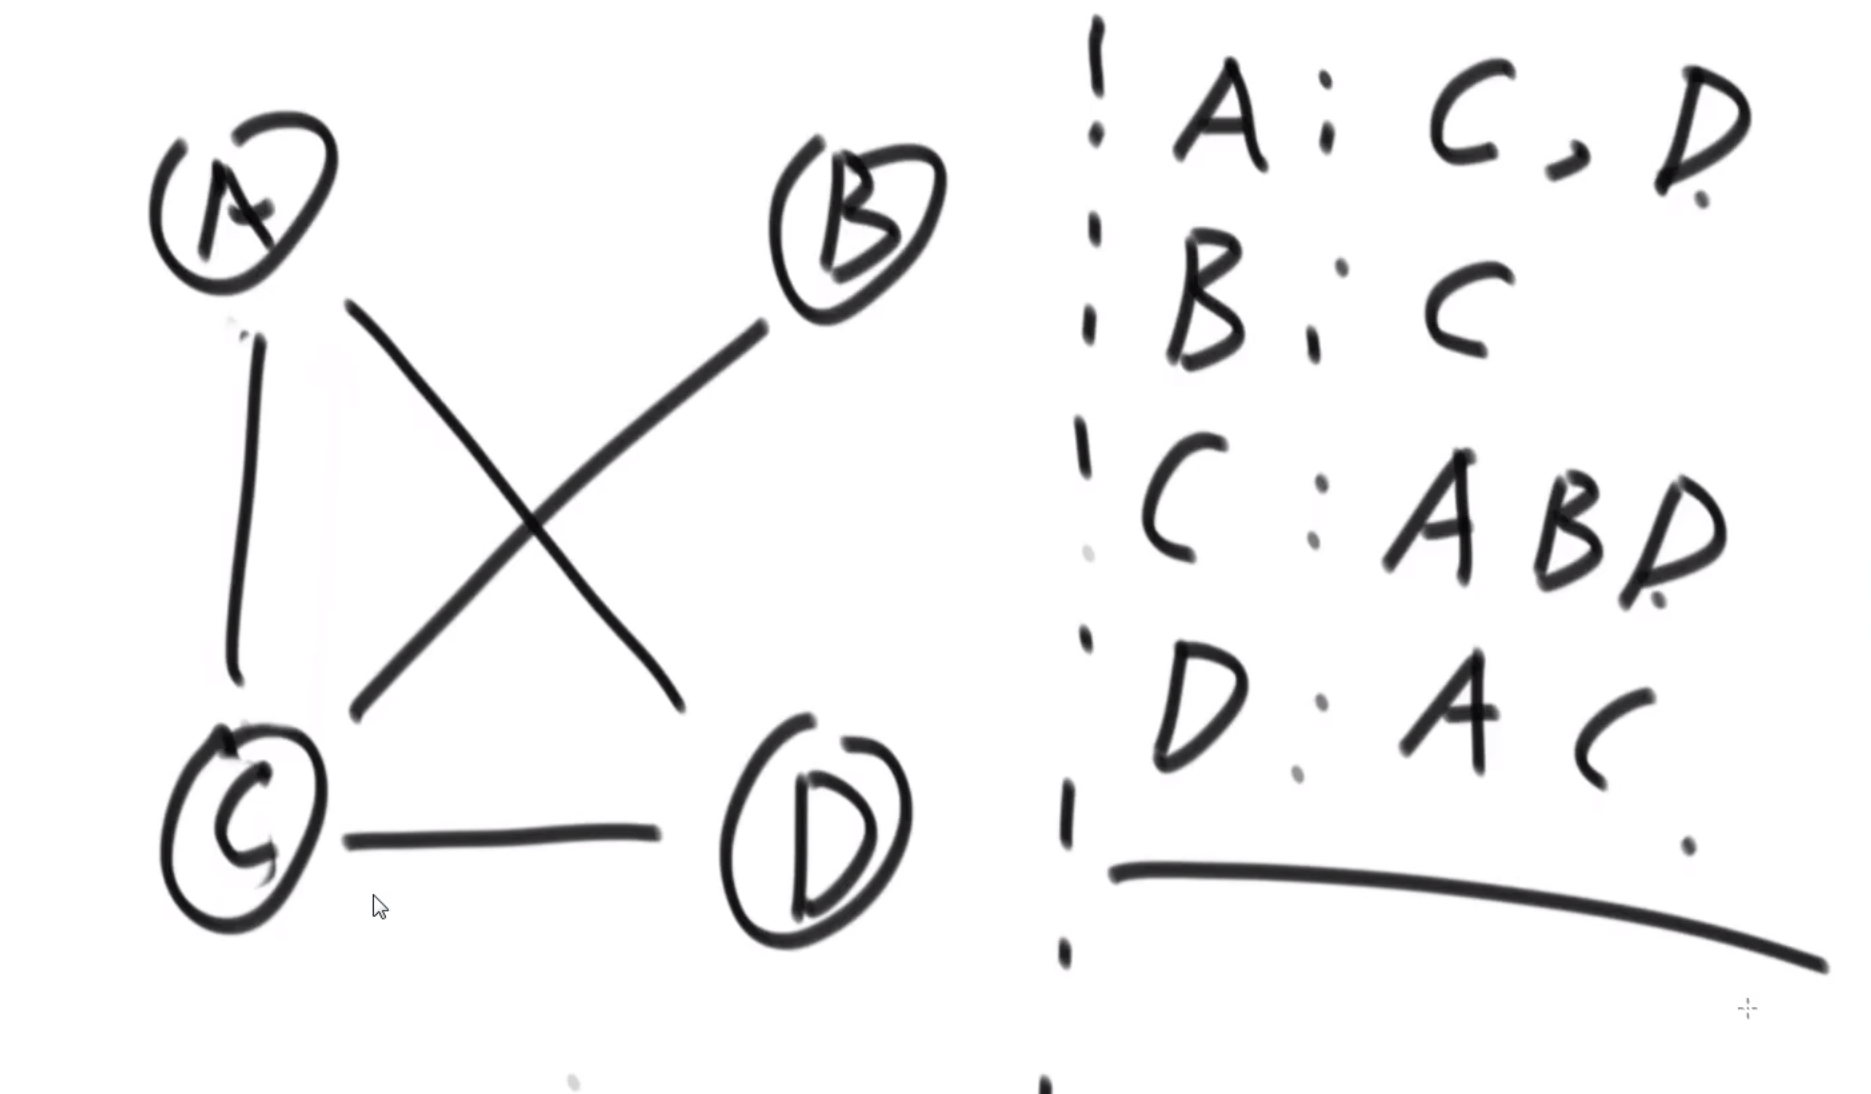 A
B
C
D
A: C, D
B: C
C: A B D
D: A C